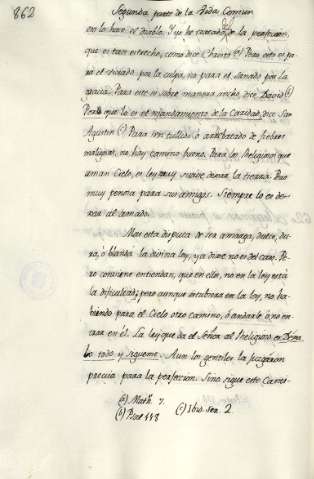 862
Segunda parte de la Vida Comun
en lo hace el diablo. Y se ha causado de la perfeccion,
que es tan estrecho, como dice Christo (a) Pero esto es pa-
ra el viciado por la culpa, no para el sanado por la
gracia. Para este es sobre manera ancho, dice David (b)
Porque lo es el mandamiento de la Caridad, dice San
Agustin (c) Para un tullido ó de fiebres
malignas, no hay camino bueno. Para los Religiosos que
aman Cielo, es ley muy suave dexar la tierra. Pero
muy penosa para sus amigos. Siempre lo es de-
xar al amado.
Mas esta disputa de si es amarga, dulce, du-
ra, ó blanda la divina ley, ya dixe no es del caso. Pe-
ro conviene entiendan, que en ellos, no en la ley está
la dificultad; pero aunque estubiera en la ley, no ha-
biendo para el Cielo otro camino, ó andarle ó no en-
trar en él. La ley que da el Señor al Religioso es Dexa-
lo todo y sigueme. Aun los gentiles la juzgaron
precisa para la perfeccion. Sino sigue esto Carre-
(a) Math. 7.
(b) Psal 118 (c) Ibid. ser. 2.